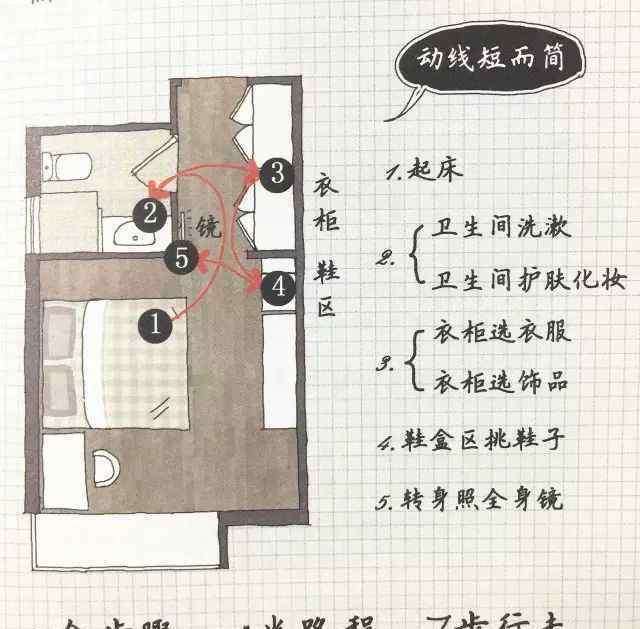 动线短而简
1.起床
2.
卫生间洗漱
卫生间护肤化妆
3.
衣柜选衣服
衣柜选饰品
4.鞋盒区挑鞋子
5.转身照全身镜
衣柜
鞋区
镜
1
2
3
4
5